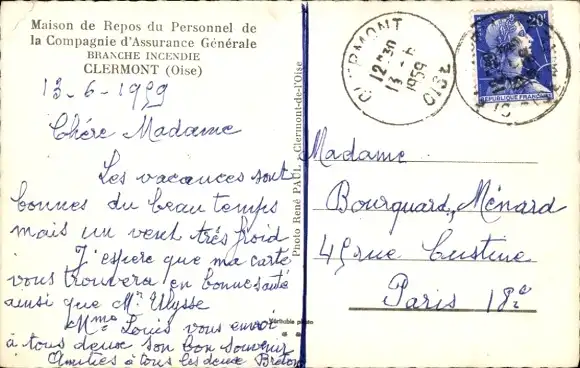 Maison de Repos du Personnel de
la Compagnie d'Assurance Générale
BRANCHE INCENDIE
CLERMONT (Oise)
13-6-1959
Chére Madame
Les vacances sont
bonnes du beau temps
mais un vent très froid
J'espere que ma carte
vous trouvera en bonne santé
ainsi que Mr Ulysse
Mme Louis vous envoi
à tous deux son bon souvenir
Amitiés à tous les deux Breton
Photo René PAUL, Clermont-de-l'Oise
Véritable photo
CLERMONT
12H30
13-6
1959
OISE
20F
REPUBLIQUE FRANÇAISE
Madame
Bourquard, Ménard
45 rue Custine
Paris 18e